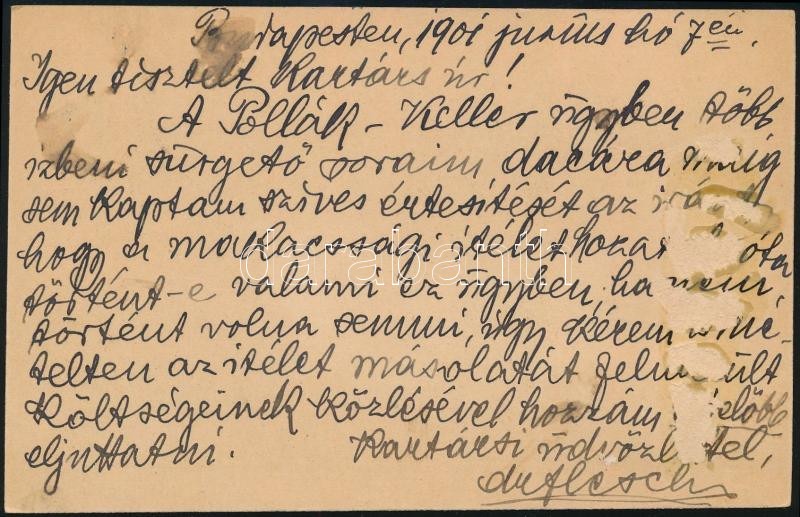 Budapesten, 1901 junius hó 7én.
Igen tisztelt Kartárs úr!
A Pollák - Keller ügyben több
izbeni sürgető soraim dacára
sem kaptam szives értesitését az iránt
hogy a makacssági itélet hoza óta
történt-e valami ez ügyben, ha nem
történt volna semmi, úgy kérem
telten az itélet másolatát felmerült
költségeinek közlésével hozzám előbb
eljuttatni. Kartársi üdvözlettel,
darabanth